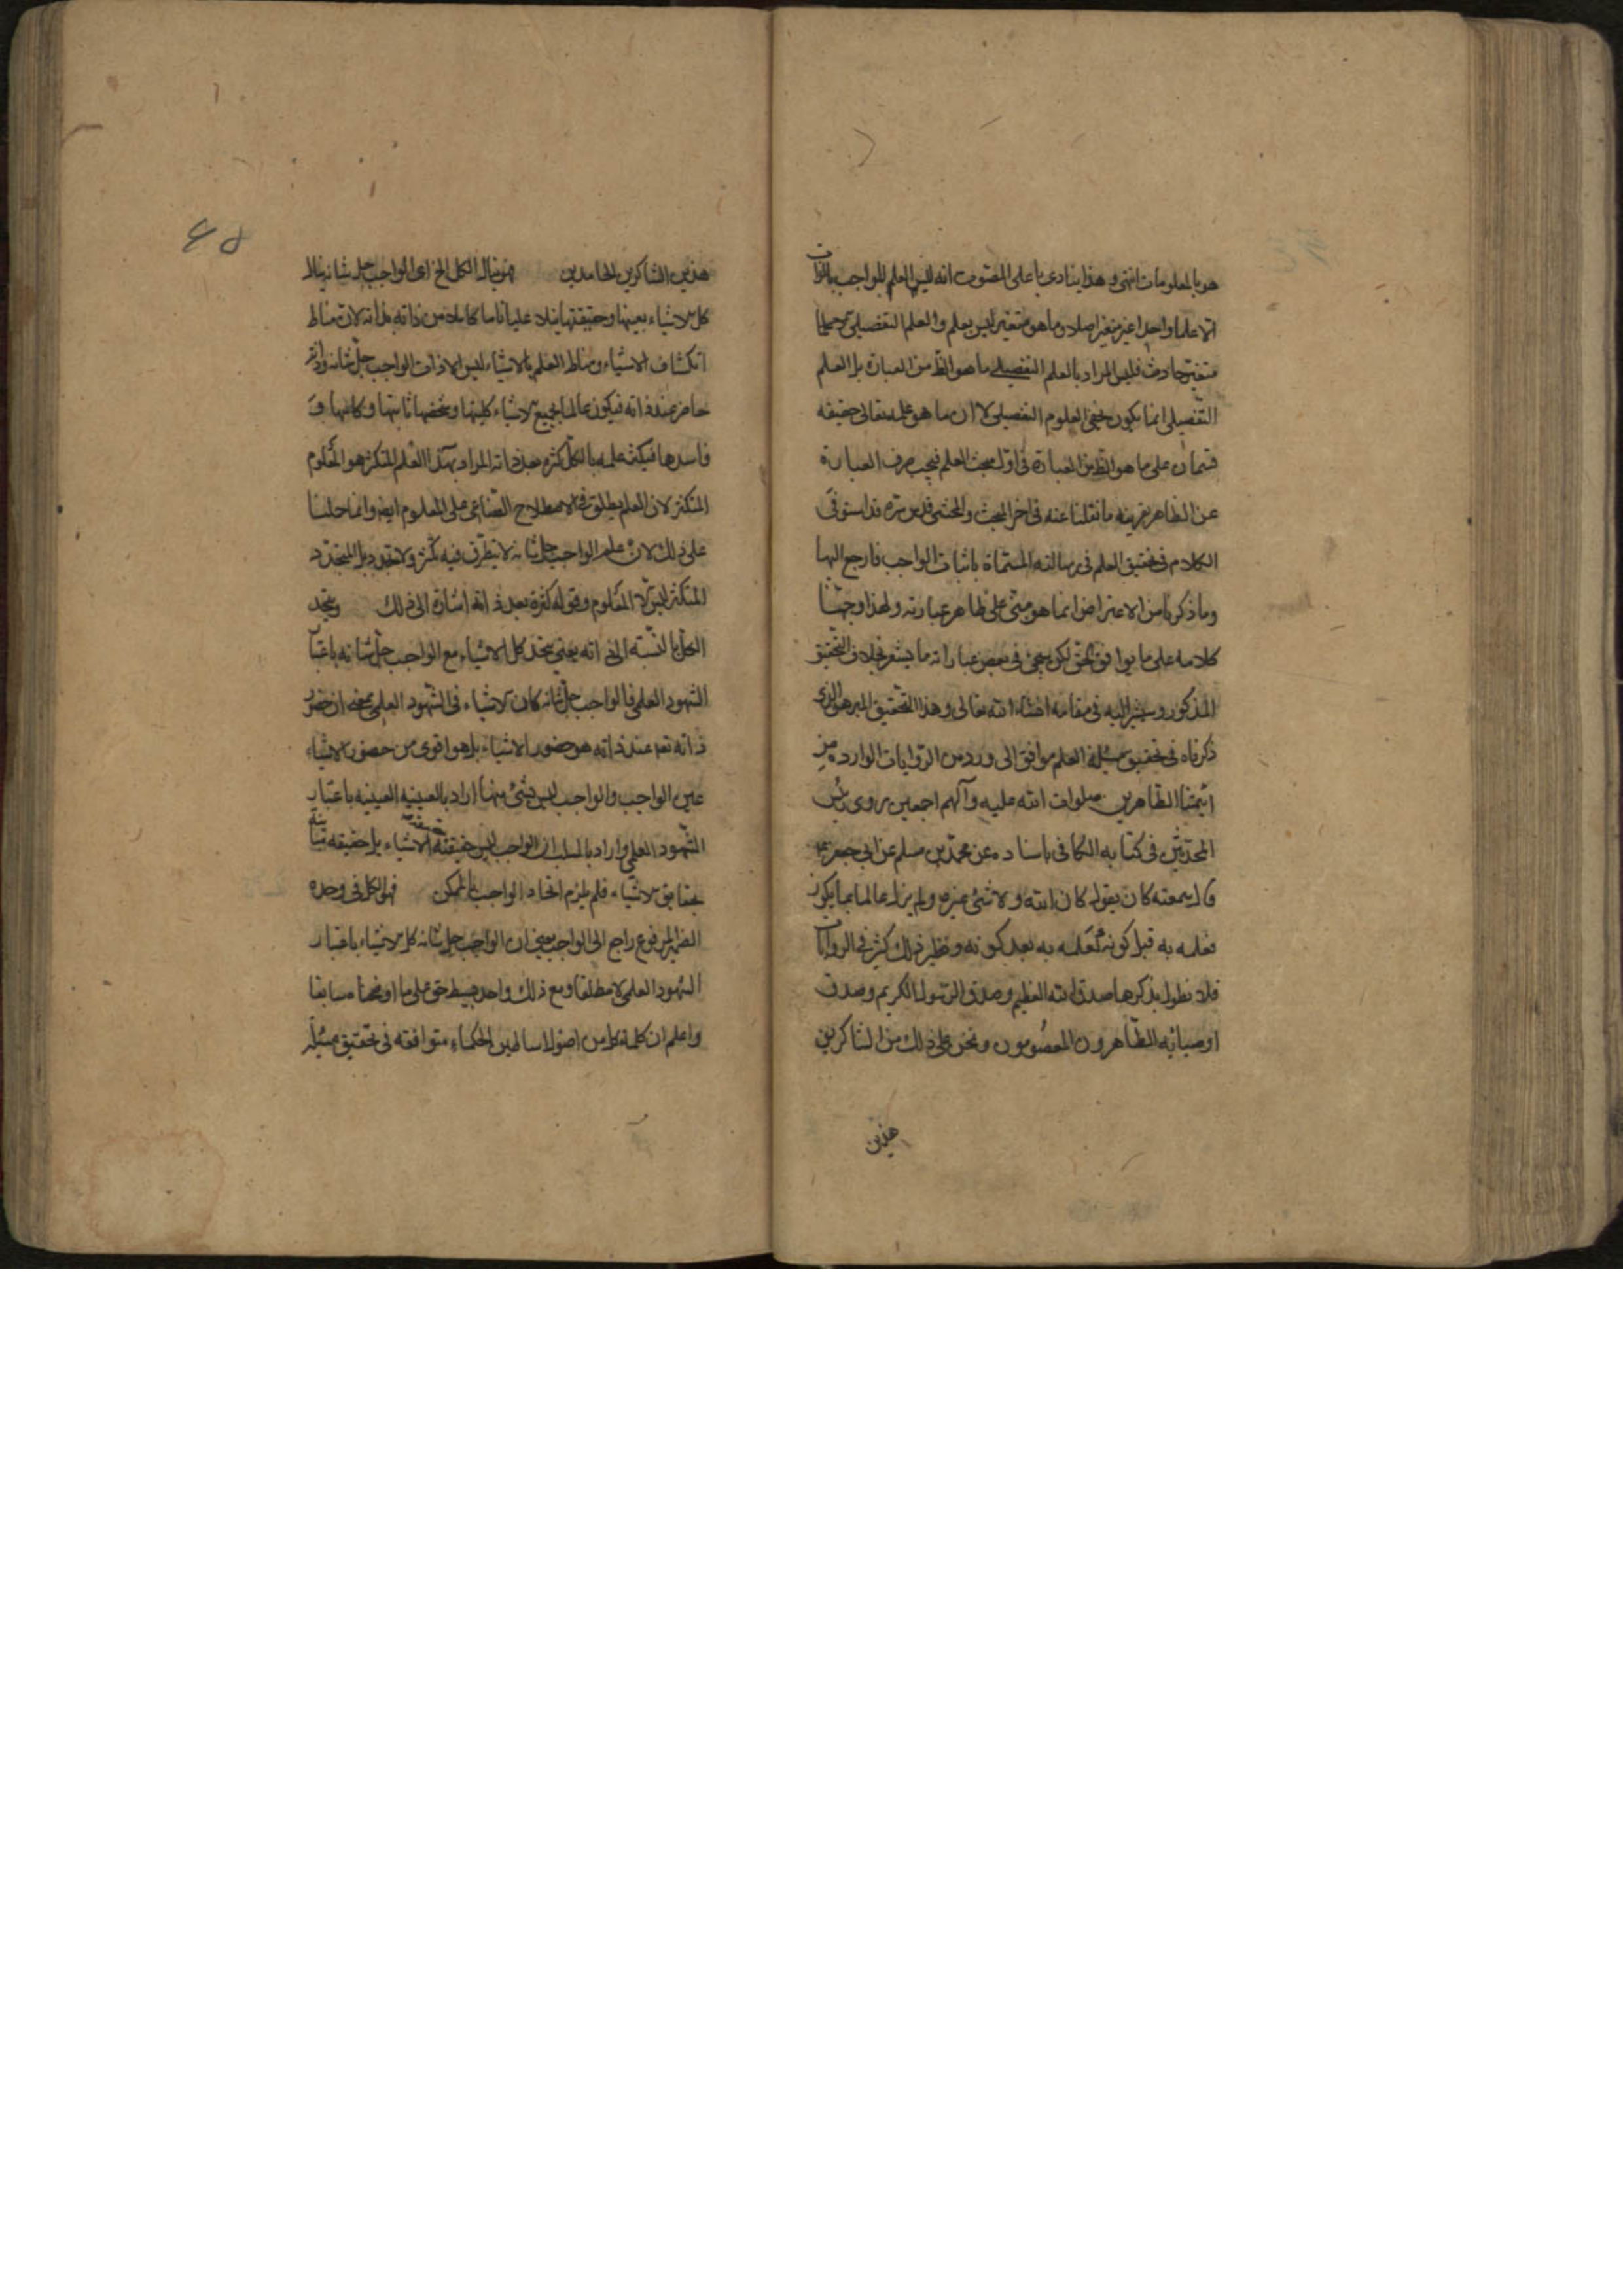 هو بالمعلومات انتهى وهذا ينادى باعلى الصوت انه ليس العلم للواجب بالذات
الا علما واحدا غير متغير اصلا وما هو متغير ليس بعلم والعلم التفصيلى
متغير حادث فليس المراد بالعلم التفصيلى ما هو الظ من العبارة بل العلم
التفصيلى انما يكون العلوم التفصيلى لا ان ما هو علمه تعالى حقيقه
قسمان على ما هو الظ من العبارة فى اول مبحث العلم فيجب صرف العبارة
عن الظاهر بقرينه ما نقلنا عنه فى اخر المبحث والمحشى قدس سره قد استوفى
الكلام فى تحقيق العلم فى رسالته المسماة باثبات الواجب فارجع اليها
وما ذكرنا من الاعتراض انما هو مبنى على ظاهر عبارته ولهذا وجهنا
كلامه على ما يوافق الحق لكن يجئ فى بعض عباراته ما يشعر بخلاف التحقيق
المذكور وسنشير اليه فى مقامه انشاء الله تعالى وهذا التحقيق الذى
ذكرناه فى تحقيق مسئلة العلم موافق الى ورد من الروايات الوارده من
ائمتنا الطاهرين صلوات الله عليه وآلهم اجمعين روى رئيس
المحدثين فى كتابه الكافى باسناده عن محمد بن مسلم عن ابى جعفر ع
قال سمعته كان يقول كان الله ولا شئ غيره ولم يزل عالما بما يكون
فعلمه به قبل كونه كعلمه به بعد كونه ونظير ذلك كثير فى الروايات
فلا نطول بذكرها صدق الله العظيم وصدق الرسول الكريم وصدق
اوصيائه الطاهرون المعصومون ونحن على ذلك من الشاكرين
هذين
٤٥
هذين الشاكرين الحامدين فهو ينال الكل الخ اى الواجب جل شانه ينال
كل الاشياء بعينها وحقيقتها نيلا عليا تاما كاملا من ذاته بذاته لان مناط
انكشاف الاشياء ومناط العلم بالاشياء ليس الا ذات الواجب جل شانه وذاته
حاضر عند ذاته فيكون عالما بجميع الاشياء كليتها وشخصها ثابتها وكائنها و
فاسدها فيكثر علمه بالكل كثرة بعد ذاته المراد بهذا العلم المتكثر هو المعلوم
المتكثر لان العلم يطلق فى الاصطلاح الصناعى على المعلوم ايضا وانما حملنا
على ذلك لان علم الواجب جل شانه لا يتطرق فيه تكثر ولا تجدد بل المتجدد
المتكثر ليس الا المعلوم وقوله كثرة بعد ذاته اشارة الى ذلك ويتحد
الكل بالنسبة الى ذاته يعنى يتحد كل الاشياء مع الواجب جل شانه باعتبار
الشهود العلمى فالواجب جل شانه كان الاشياء فى الشهود العلمى بمعنى ان حضور
ذاته تعه عند ذاته هو حضور الاشياء بل هو اقوى من حضور الاشياء
عين الواجب والواجب ليس بشئ منها اراد بالعينيه العينيه باعتبار
الشهود العلمى واراد بالسلب ان الواجب ليس حقيقته حقيقة الاشياء بل حقيقه مباينة
بحقايق الاشياء فلم يلزم اتحاد الواجب بالممكن فهو الكل فى وحده
الضمير المرفوع راجع الى الواجب يعنى ان الواجب جل شانه كل الاشياء باعتبار
الشهود العلمى لا مطلقا ومع ذلك واحد بسيط حق على ما اوضحنا سابقا
واعلم ان كلمة كل من اصول اساطين الحكماء متوافقه فى تحقيق مسئلة